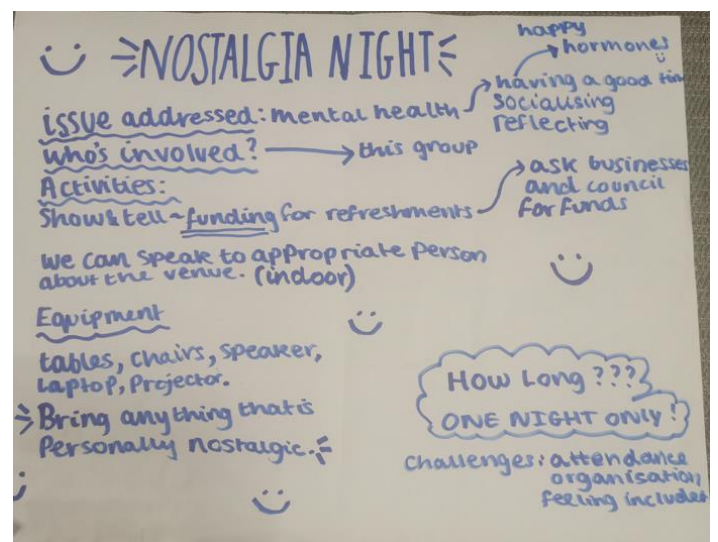 NOSTALGIA NIGHT
happy
hormones
issue addressed: mental health
having a good tim
socialising
reflecting
who's involved? this group
Activities:
Show & tell ~ funding for refreshments
ask businesses
and council
for funds
we can speak to appropriate person
about the venue. (indoor)
Equipment
tables, chairs, speaker,
Laptop, Projector.
Bring anything that is
Personally nostalgic.
How Long ???
ONE NIGHT ONLY!
Challenges: attendance
organisation,
feeling included